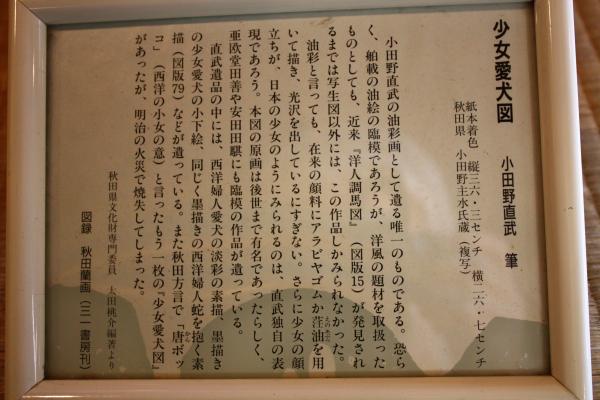 少女愛犬図　小田野直武　筆
紙本着色　縦三六・三センチ　横二六・七センチ
秋田県　小田野主水氏蔵（複写）
小田野直武の油彩画として遺る唯一のものである。恐ら
く、舶載の油絵の臨模であろうが、洋風の題材を取扱った
ものとしても、近来『洋人調馬図』（図版15）が発見され
るまでは写生図以外には、この作品しかみられなかった。
油彩と言っても、在来の顔料にアラビヤゴムか荏油を用
いて描き、光沢を出しているにすぎない。さらに少女の顔
立ちが、日本の少女のようにみられるのは、直武独自の表
現であろう。本図の原画は後世まで有名であったらしく、
亜欧堂田善や安田田騏にも臨模の作品が遺っている。
直武遺品の中には、西洋婦人愛犬の淡彩の素描、墨描き
の少女愛犬の小下絵、同じく墨描きの西洋婦人蛇を抱く素
描（図版79）などが遺っている。また秋田方言で「唐ボッ
コ」（西洋の小女の意）と言ったもう一枚の『少女愛犬図』
があったが、明治の火災で焼失してしまった。
秋田県文化財専門委員　太田桃介編著より
図録　秋田蘭画（三一書房刊）